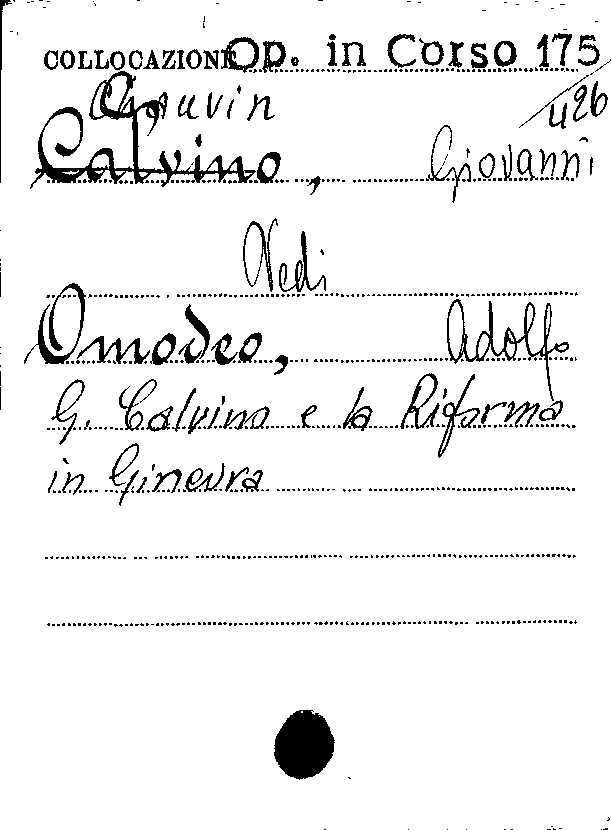 COLLOCAZIONE Op. in Corso 175
426
Chauvin
Calvino, Giovanni
Vedi
Omodeo, Adolfo
G. Calvino e la Riforma
in Ginevra